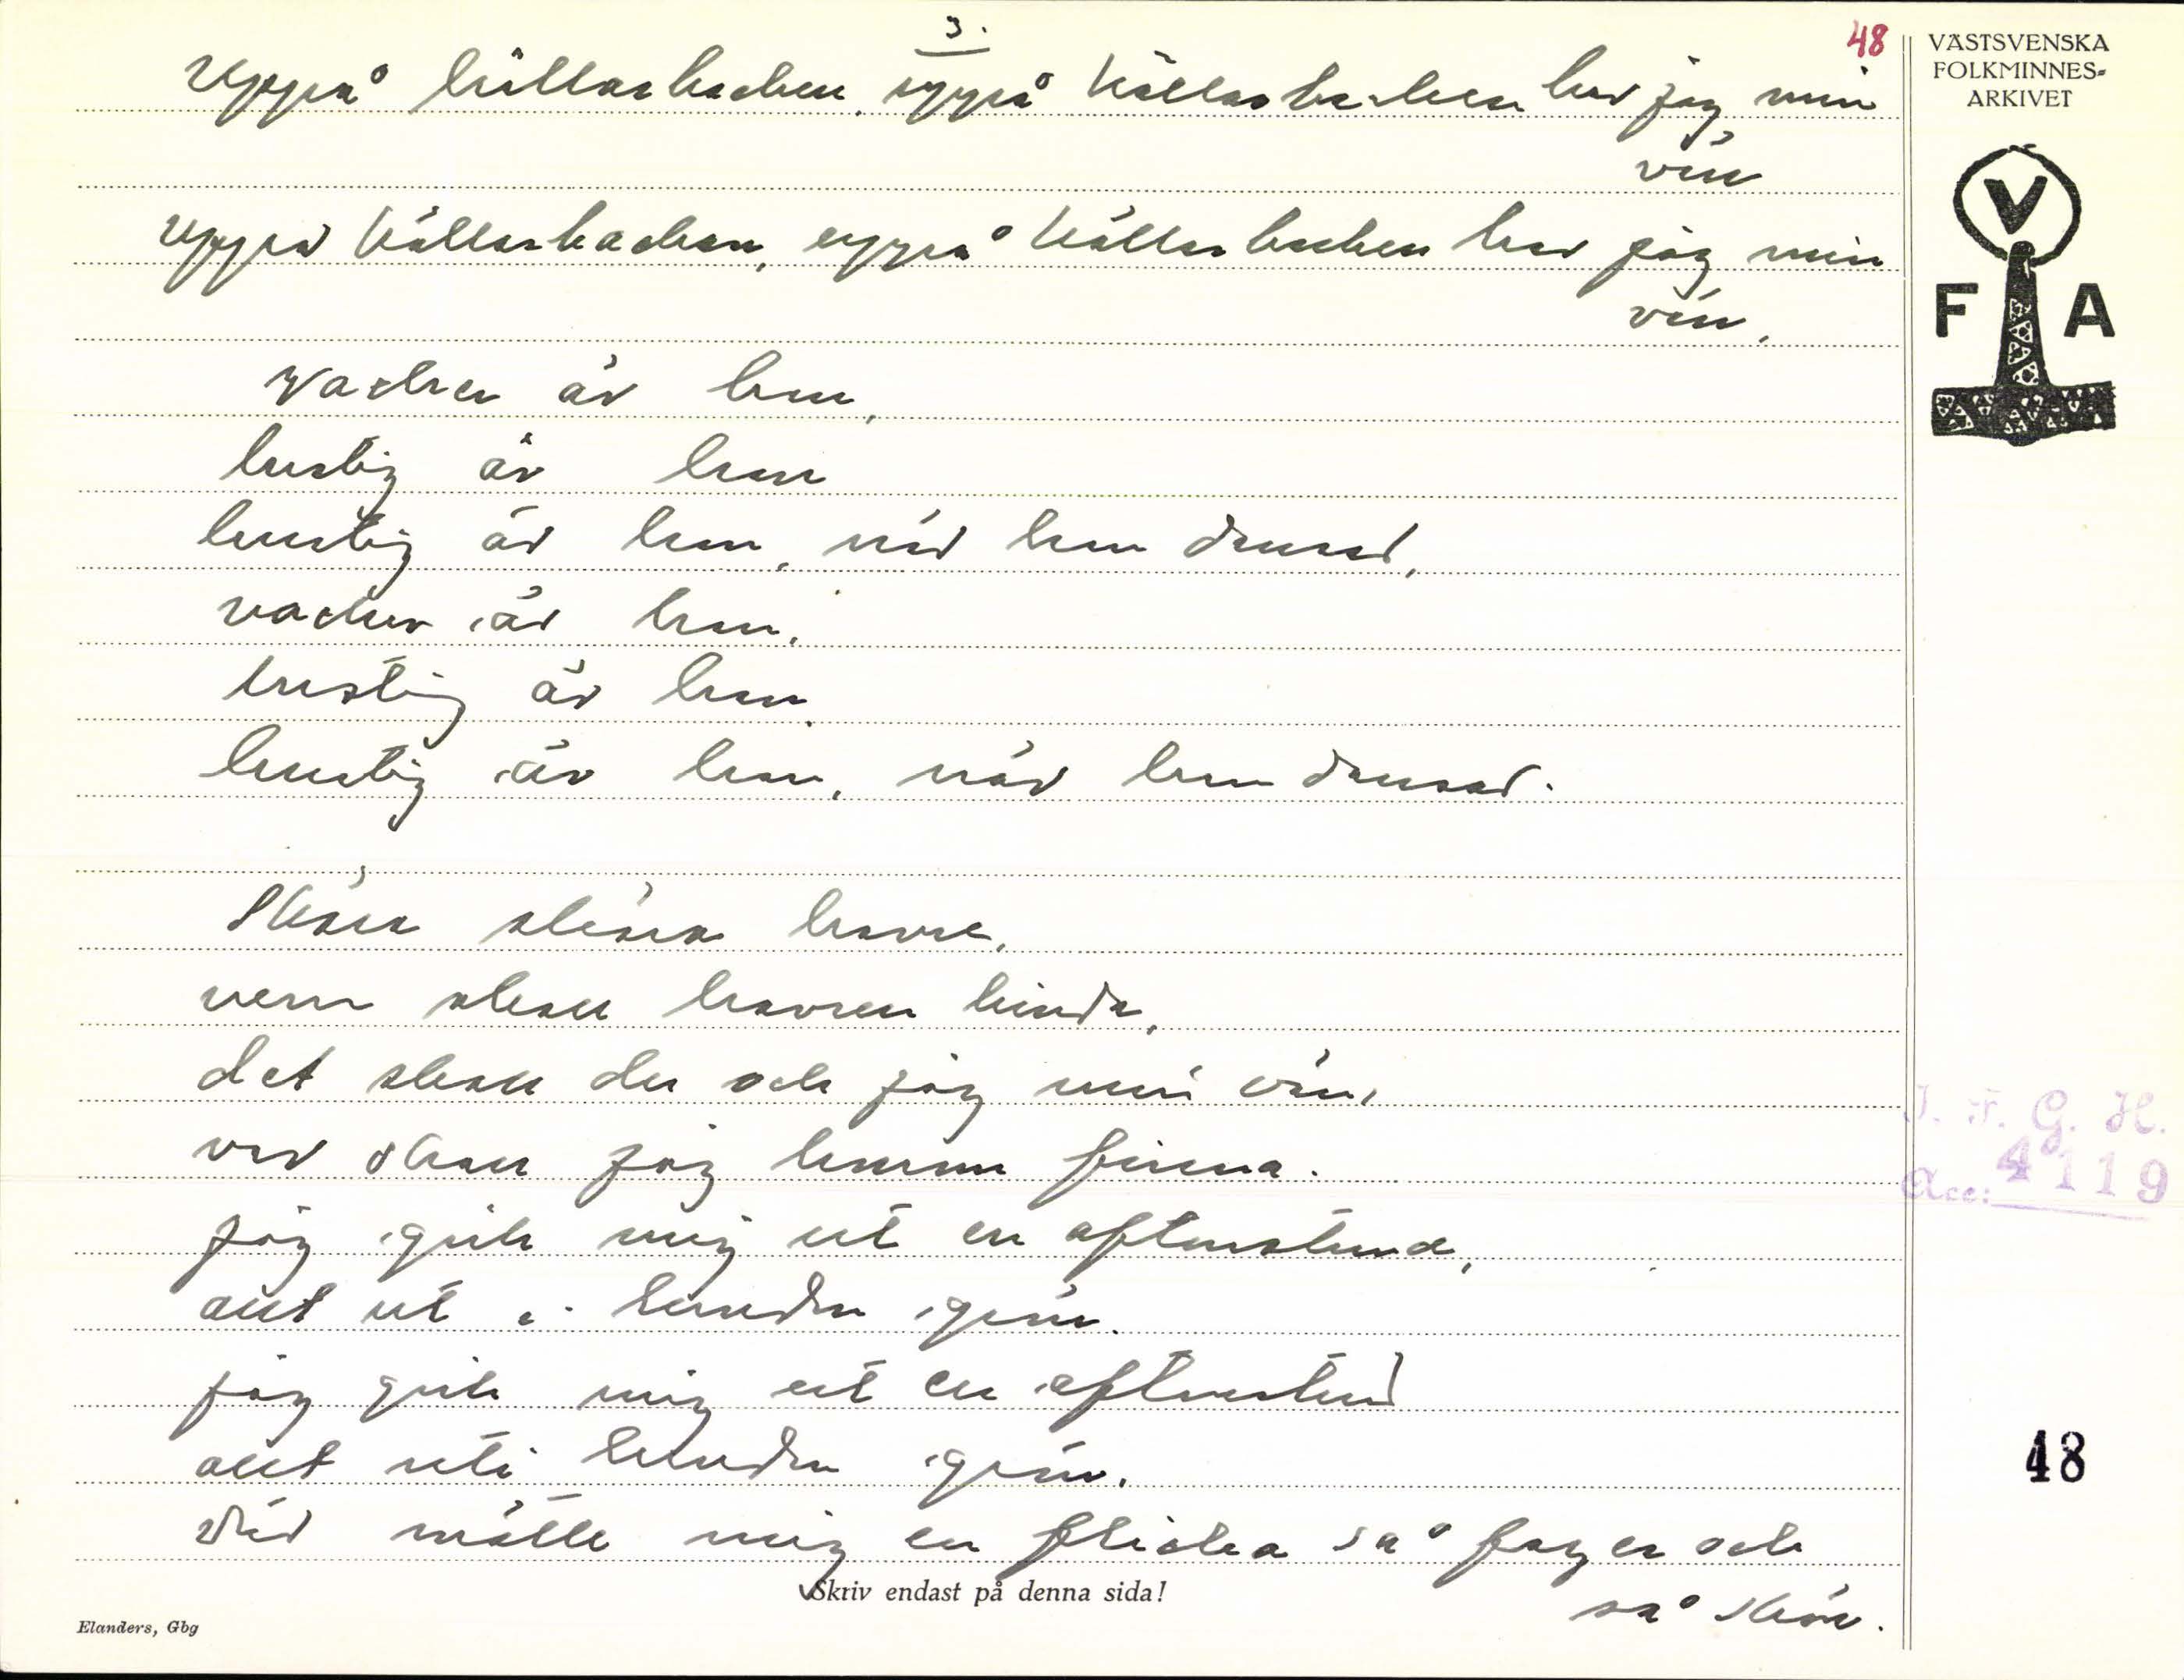 3.
48
Uppå källarbacken, uppå källarbacken har jag min
vän
Uppå källarbacken, uppå källarbacken har jag min
vän,
vacker är hon,
lustig är hon
lustig är hon, när hon dansar,
vacker är hon,
lustig är hon,
lustig är hon, när hon dansar.
Skära skära havre,
vem skall havren binda,
det skall du och jag min vän,
var skall jag honom finna.
jag gick mig ut en aftonstund,
allt ut i lunden grön.
jag gick mig ut en aftonstund
allt uti lunden grön,
där mötte mig en flicka så fager och
så skön.
Skriv endast på denna sida!
Elanders, Gbg
VÄSTSVENSKA
FOLKMINNES-
ARKIVET
V
F A
I. F. G. H.
Acc: 4119
48